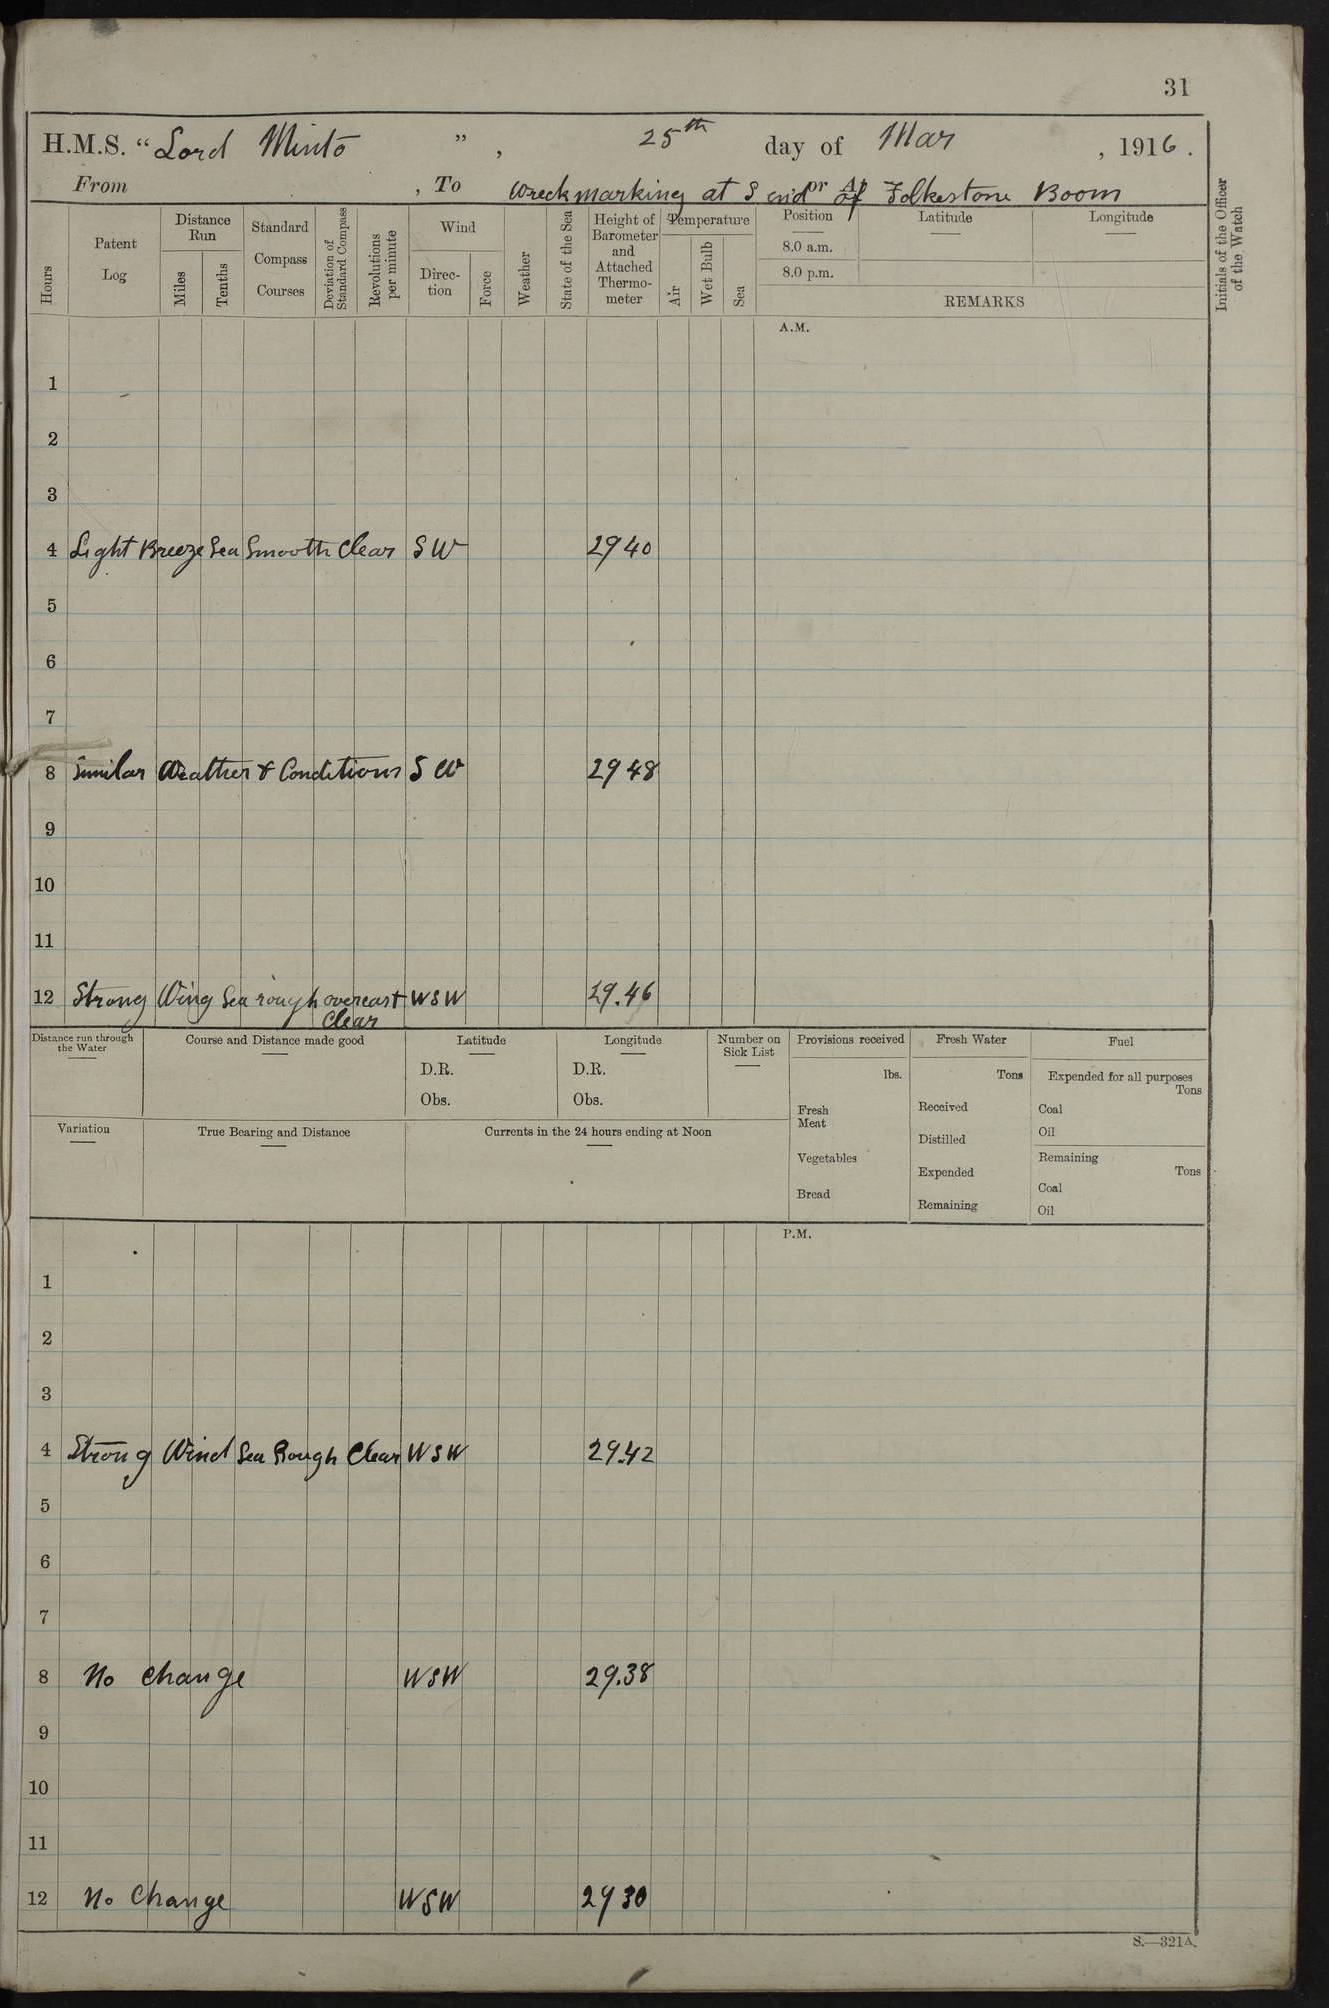 31
H.M.S. “Lord Minto ” , 25th day of Mar , 1916.
From , To Wreckmarking at S end of Folkestone Boom
or At
Hours
Patent Log
Distance Run
Miles
Tenths
Standard Compass Courses
Deviation of Standard Compass
Revolutions per minute
Wind
Direc-tion
Force
Weather
State of the Sea
Height of Barometer and Attached Thermo-meter
Temperature
Air
Wet Bulb
Sea
Position
8.0 a.m.
8.0 p.m.
Latitude
Longitude
REMARKS
Initials of the Officer of the Watch
A.M.
1
2
3
4 Light Breeze Sea Smooth Clear SW 2940
5
6
7
8 Similar Weather & Conditions SW 2948
9
10
11
12 Strong Wing Sea rough overcast WSW 29.46
Clear
Distance run through the Water
Course and Distance made good
Latitude
D.R.
Obs.
Longitude
D.R.
Obs.
Number on Sick List
Provisions received
lbs.
Fresh Meat
Vegetables
Bread
Fresh Water
Tons
Received
Distilled
Expended
Remaining
Fuel
Expended for all purposes
Tons
Coal
Oil
Remaining
Tons
Coal
Oil
Variation
True Bearing and Distance
Currents in the 24 hours ending at Noon
P.M.
1
2
3
4 Strong Wind Sea Rough Clear WSW 29.42
5
6
7
8 No change WSW 29.38
9
10
11
12 No Change WSW 2930
S.—321A.